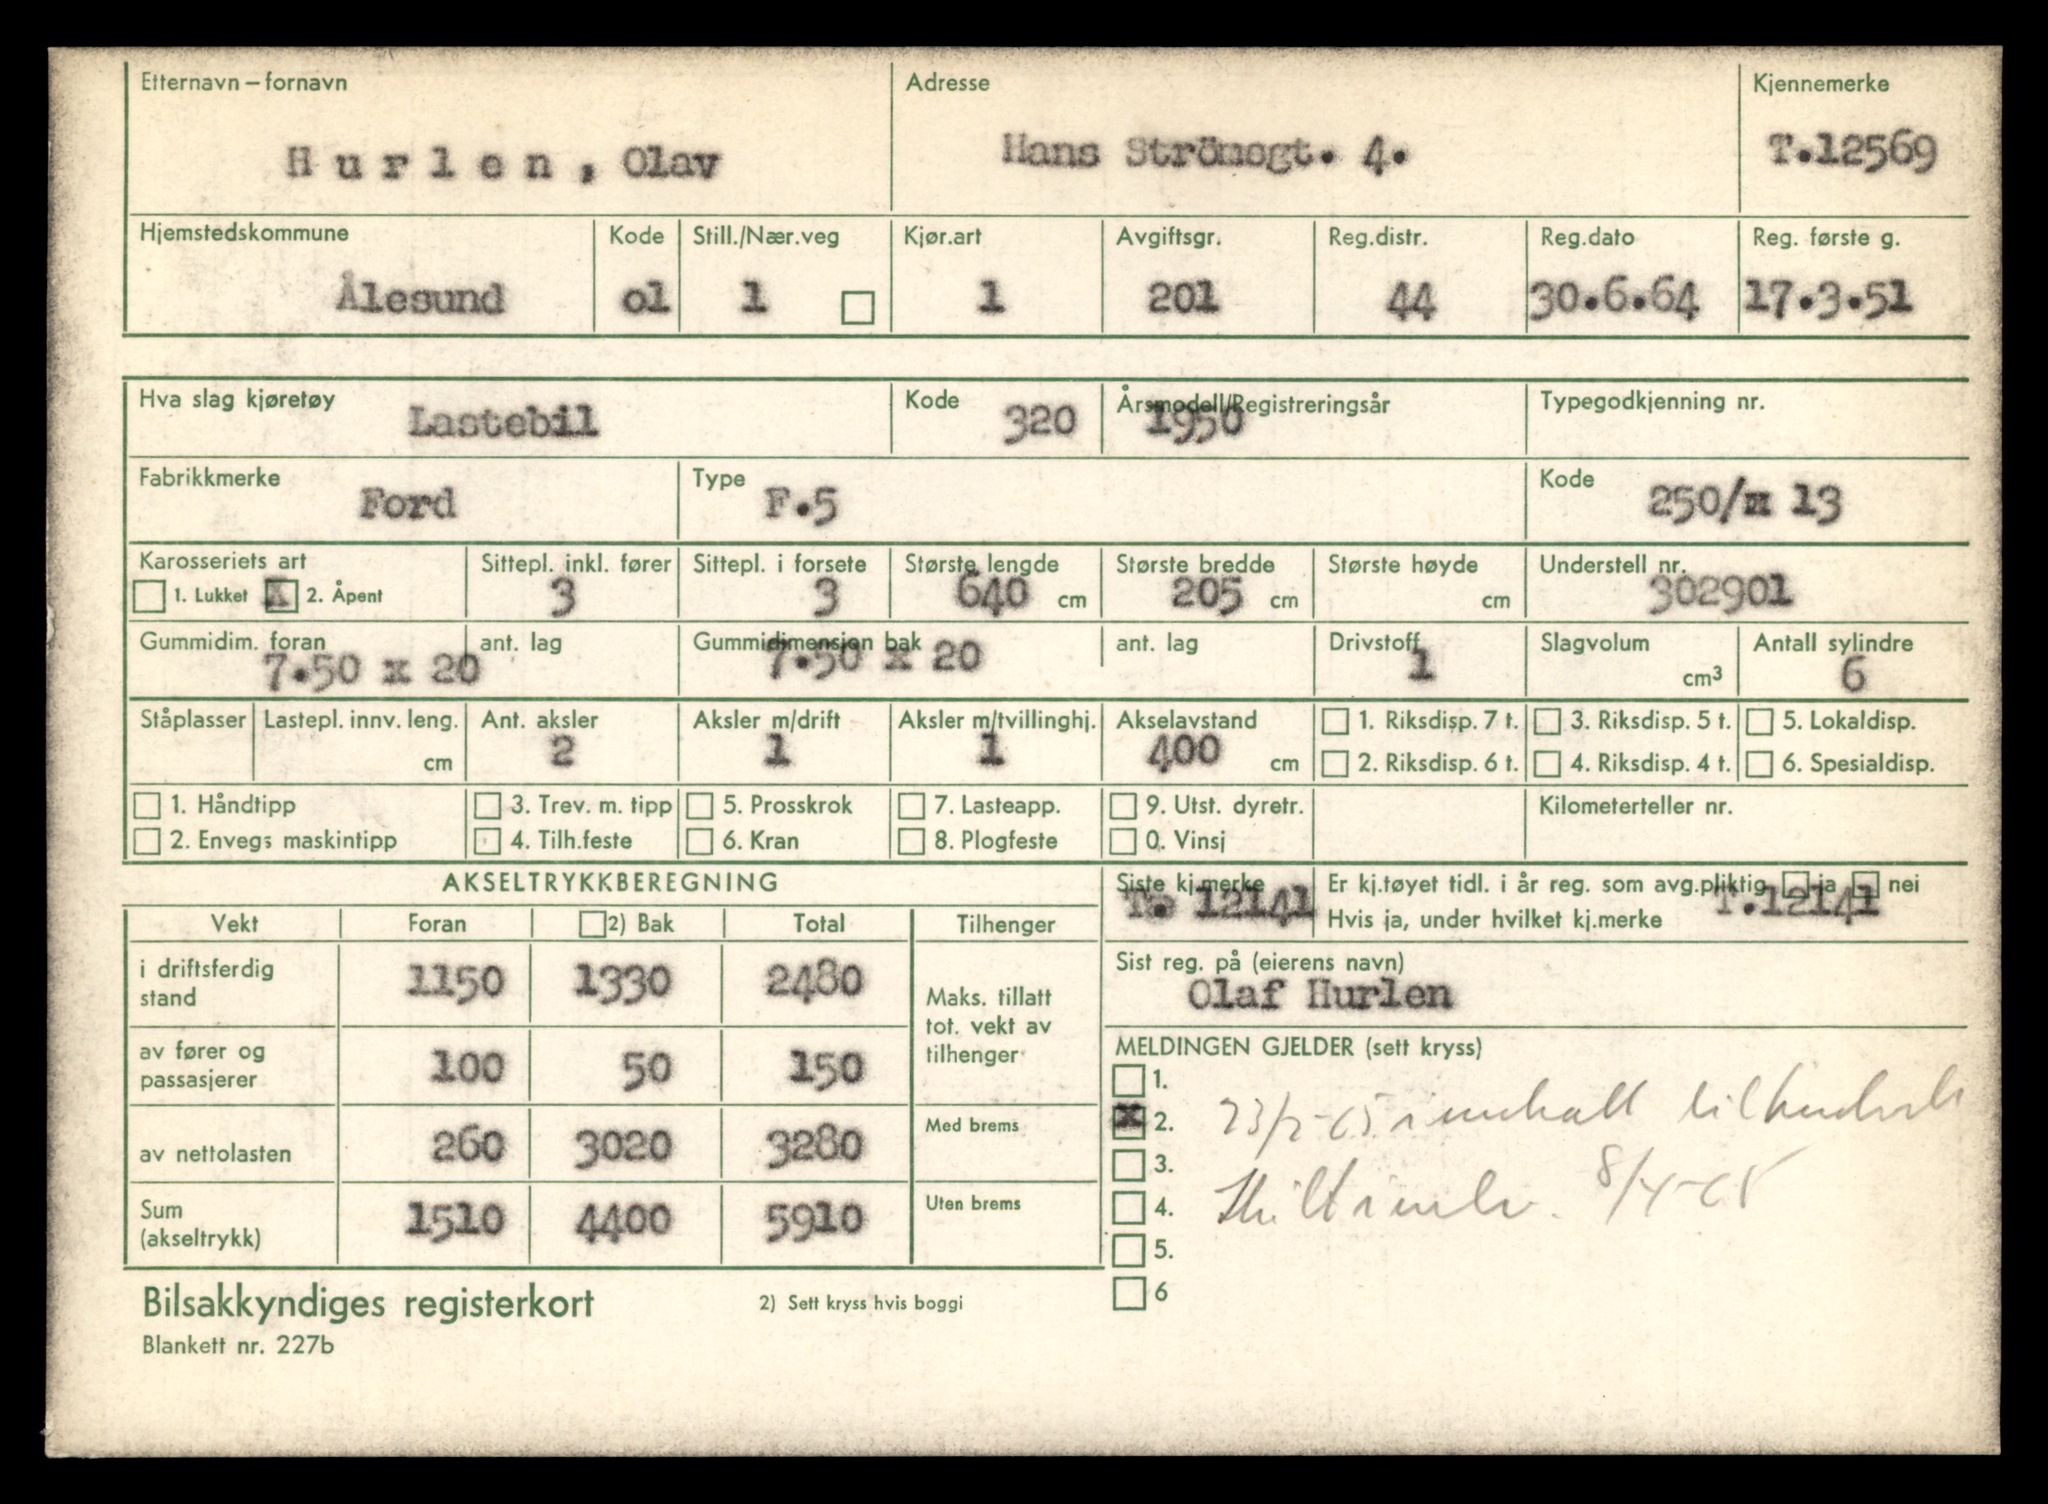 Etternavn – fornavn Adresse Kjennemerke
H u r l e n , Olav Hans Strömsgt. 4. T.12569
Hjemstedskommune Kode Still./Nær.veg Kjør.art Avgiftsgr. Reg.distr. Reg.dato Reg. første g.
Ålesund ol 1 1 201 44 30.6.64 17.3.51
Hva slag kjøretøy Kode Årsmodell/Registreringsår Typegodkjenning nr.
Lastebil 320 1950
Fabrikkmerke Type Kode
Ford F.5 250/x 13
Karosseriets art Sittepl. inkl. fører Sittepl. i forsete Største lengde Største bredde Største høyde Understell nr.
1. Lukket X 2. Åpent 3 3 640 cm 205 cm cm 302901
Gummidim. foran ant. lag Gummidimensjon bak ant. lag Drivstoff Slagvolum Antall sylindre
7.50 x 20 7.50 x 20 1 cm3 6
Ståplasser Lastepl. innv. leng. Ant. aksler Aksler m/drift Aksler m/tvillinghj. Akselavstand 1. Riksdisp. 7 t. 3. Riksdisp. 5 t. 5. Lokaldisp.
cm 2 1 1 400 cm 2. Riksdisp. 6 t. 4. Riksdisp. 4 t. 6. Spesialdisp.
1. Håndtipp 3. Trev. m. tipp 5. Prosskrok 7. Lasteapp. 9. Utst. dyretr. Kilometerteller nr.
2. Envegs maskintipp 4. Tilh.feste 6. Kran 8. Plogfeste 0. Vinsj
AKSELTRYKKBEREGNING Siste kj.merke Er kj.tøyet tidl. i år reg. som avg.pliktig ja nei
T. 12141 Hvis ja, under hvilket kj.merke T.12141
Vekt Foran 2) Bak Total Tilhenger
i driftsferdig stand 1150 1330 2480
Sist reg. på (eierens navn)
Olaf Hurlen
Maks. tillatt
tot. vekt av
tilhenger
av fører og passasjerer 100 50 150
MELDINGEN GJELDER (sett kryss)
1.
X 2. 23/2-65 innkalt til
3.
4. Skilt innlv. 8/4-65
5.
6
av nettolasten 260 3020 3280 Med brems
Sum (akseltrykk) 1510 4400 5910 Uten brems
Bilsakkyndiges registerkort 2) Sett kryss hvis boggi
Blankett nr. 227b